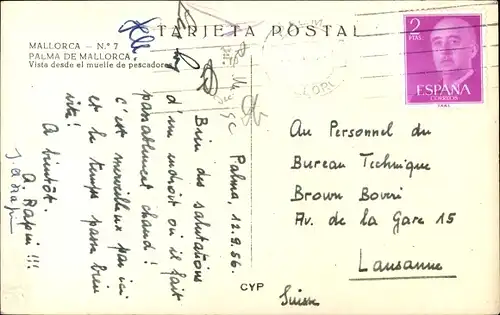 TARJETA POSTAL
MALLORCA - N.º 7
PALMA DE MALLORCA
Vista desde el muelle de pescadores
2
PTAS
ESPAÑA
CORREOS
Palma, 12.9.56.
Bien des salutations
d'un endroit où il fait
passablement chaud!
C'est merveilleux par ici
et le temps passe bien
vite!
A bientôt.
A Rapin !!!
Au Personnel du
Bureau Technique
Brown Boveri
Av. de la Gare 15
Lausanne
Suisse
CYP